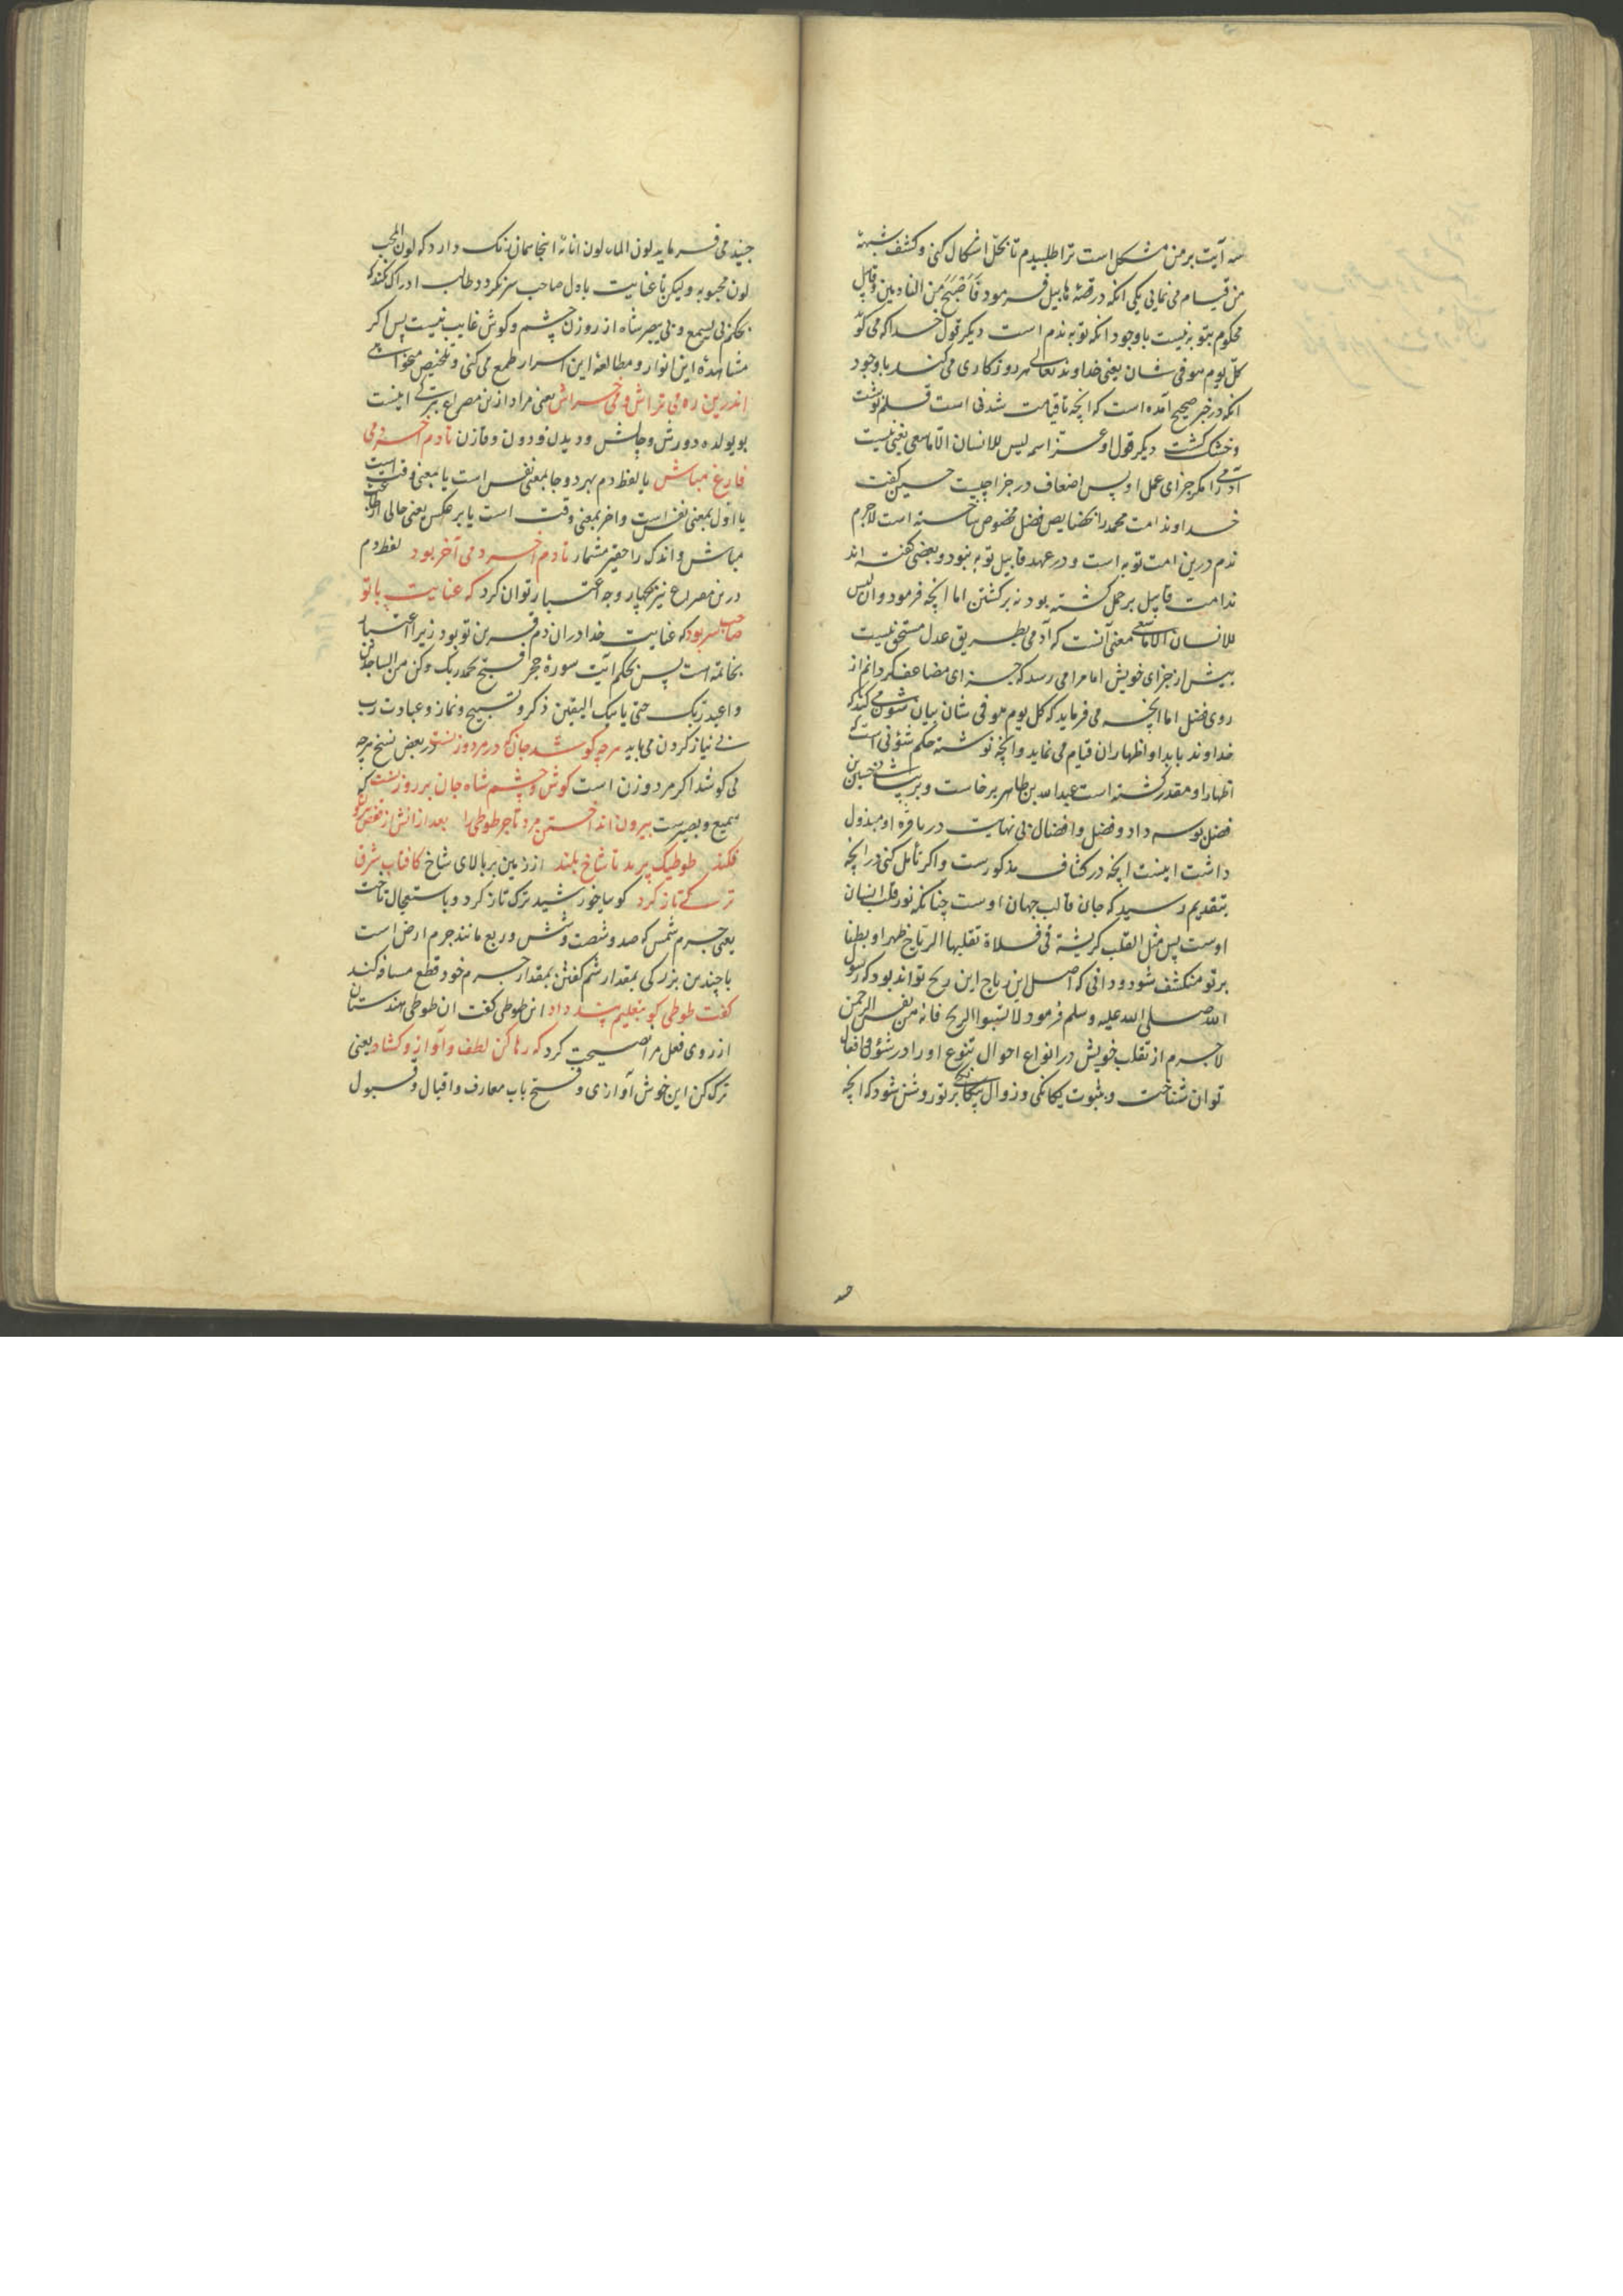 سه آیت بر من مشکل است ترا طلبیدم تا بحل اشکال کنی و کشف شبهۀ
من قیام می نمایی یکی انکه در قصۀ هابیل فرمود فَاَصْبَحَ مِنَ النادمین و قابیل
محکوم بتوبه نیست با وجود انکه توبه ندم است دیکر قول خدا که می کوید
کلّ یوم هو فی شان یعنی خداوند تعالی هر روز کاری می کند با وجود
انکه در خبر صحیح آمده است که انچه تا قیامت شدنی است قلم نوشت
و خشک کشت دیکر قول او عزّ اسمه لیس للانسان الّا ما سعی یعنی نیست
آدمی را مکر جزای عمل او پس اضعاف در جزا چیست حسین کفت
خداوند امت محمد را بخصایص فضل مخصوص ساخته است لاجرم
ندم درین امت توبه است و در عهد قابیل توبه نبود و بعضی کفته اند
ندامت قابیل بر حمل کشته بود نه بر کشتن اما انچه فرمود وان لیس
للانسان الا ما سعی معنی آنست که آدمی بطریق عدل مستحق نیست
بیش از جزای خویش اما مرا می رسد که جزای مضاعف کردانم از
روی فضل اما انچه می فرماید که کل یوم هو فی شان بیان شؤنی می کند که
خداوند باید او اظهار ان قیام می نماید و انچه نوشته حکم شؤنی است که
اظهار او مقدر کشته است عبدالله بن طاهر بر خاست و بر پیشانی حسین بن
فضل بوسه داد و فضل و افضال بی نهایت دربارۀ او مبذول
داشت اینست انچه در کشاف مذکورست و اکر تأمل کنی در انچه
بتقدیم رسید که جان قالب جهان اوست چنانکه نور قلب انسان
اوست پس مثل القلب کریشة فی فلاة تقلبها الریاح ظهرا و بطنا
بر تو منکشف شود و دانی که اصل این ریاح این ریح تواند بود که رسول
الله صلی الله علیه و سلم فرمود لا تسبوا الریح فانه من نفس الرحمن
لاجرم از تقلب خویش در انواع احوال تنوع او را در شؤن و افعال
توان شناخت و بثبوت یکانکی و زوال بیکانکی بر تو روشن شود که انچه
جنید می فرماید لون الماء لون انائه اینجا همان رنک دارد که لون المحب
لون محبوبه ولیکن تا عنایت با دل صاحب سر نکردد طالب ادراک نکند که
بحکم بی یسمع و بی یبصر شاه از روزن چشم و کوش غایب نیست پس اکر
مشاهدۀ این انوار و مطالعۀ این اسرار طمع می کنی و تلخیص
اندرین ره می تراش و می خراش یعنی مراد ازین مصراع اینست
دم آخر دمی
فارغ مباش یا لفظ دم بهر دو جا بمعنی نفس است یا بمعنی وقت است
یا اول بمعنی نفس است و اخر بمعنی وقت است یا بر عکس یعنی حالی از طلب
مباش و اندک را حقیر مشمار تا دم آخر دمی آخر بود لفظ دم
درین مصراع نیز بچهار وجه اعتبار توان کرد که عنایت با تو
صاحب سر بود که عنایت خدا در ان دم قرین تو بود زیرا اعتبار
بخاتمه است پس بحکم آیت سورۀ حجر فسبح بحمد ربک وکن من الساجدین
واعبد ربک حتی یاتیک الیقین ذکر و تسبیح و نماز و عبادت رب
بی نیاز کردن می باید هرچه کوشد جان که در مرد و زنست در بعض نسخ هرچه
می کوشد اکر مرد و زن است کوش و چشم شاه جان بر روزنست که
سمیع و بصیرست بیرون انداختن مرد تاجر طوطی را بعد ازانش از قفص بیرون
فکند طوطیک پرید تا شاخ بلند از زمین بر بالای شاخ کافتاب شرق
ترکی تاز کرد کویا خورشید ترک تاز کرد و باستعجال تاخت
یعنی جرم شمس که صد و شصت و شش و ربع مانند جرم ارض است
با چندین بزرکی بمقدار شم کفتن بمقدار جرم خود قطع مسافه کند
کفت طوطی کو بتعلیم پند داد این طوطی کفت ان طوطی هندستان
از روی فعل مرا نصیحت کرد که رها کن لطف و آواز و کشاد یعنی
ترک کن این خوش آوازی و فتح باب معارف و اقبال و قبول